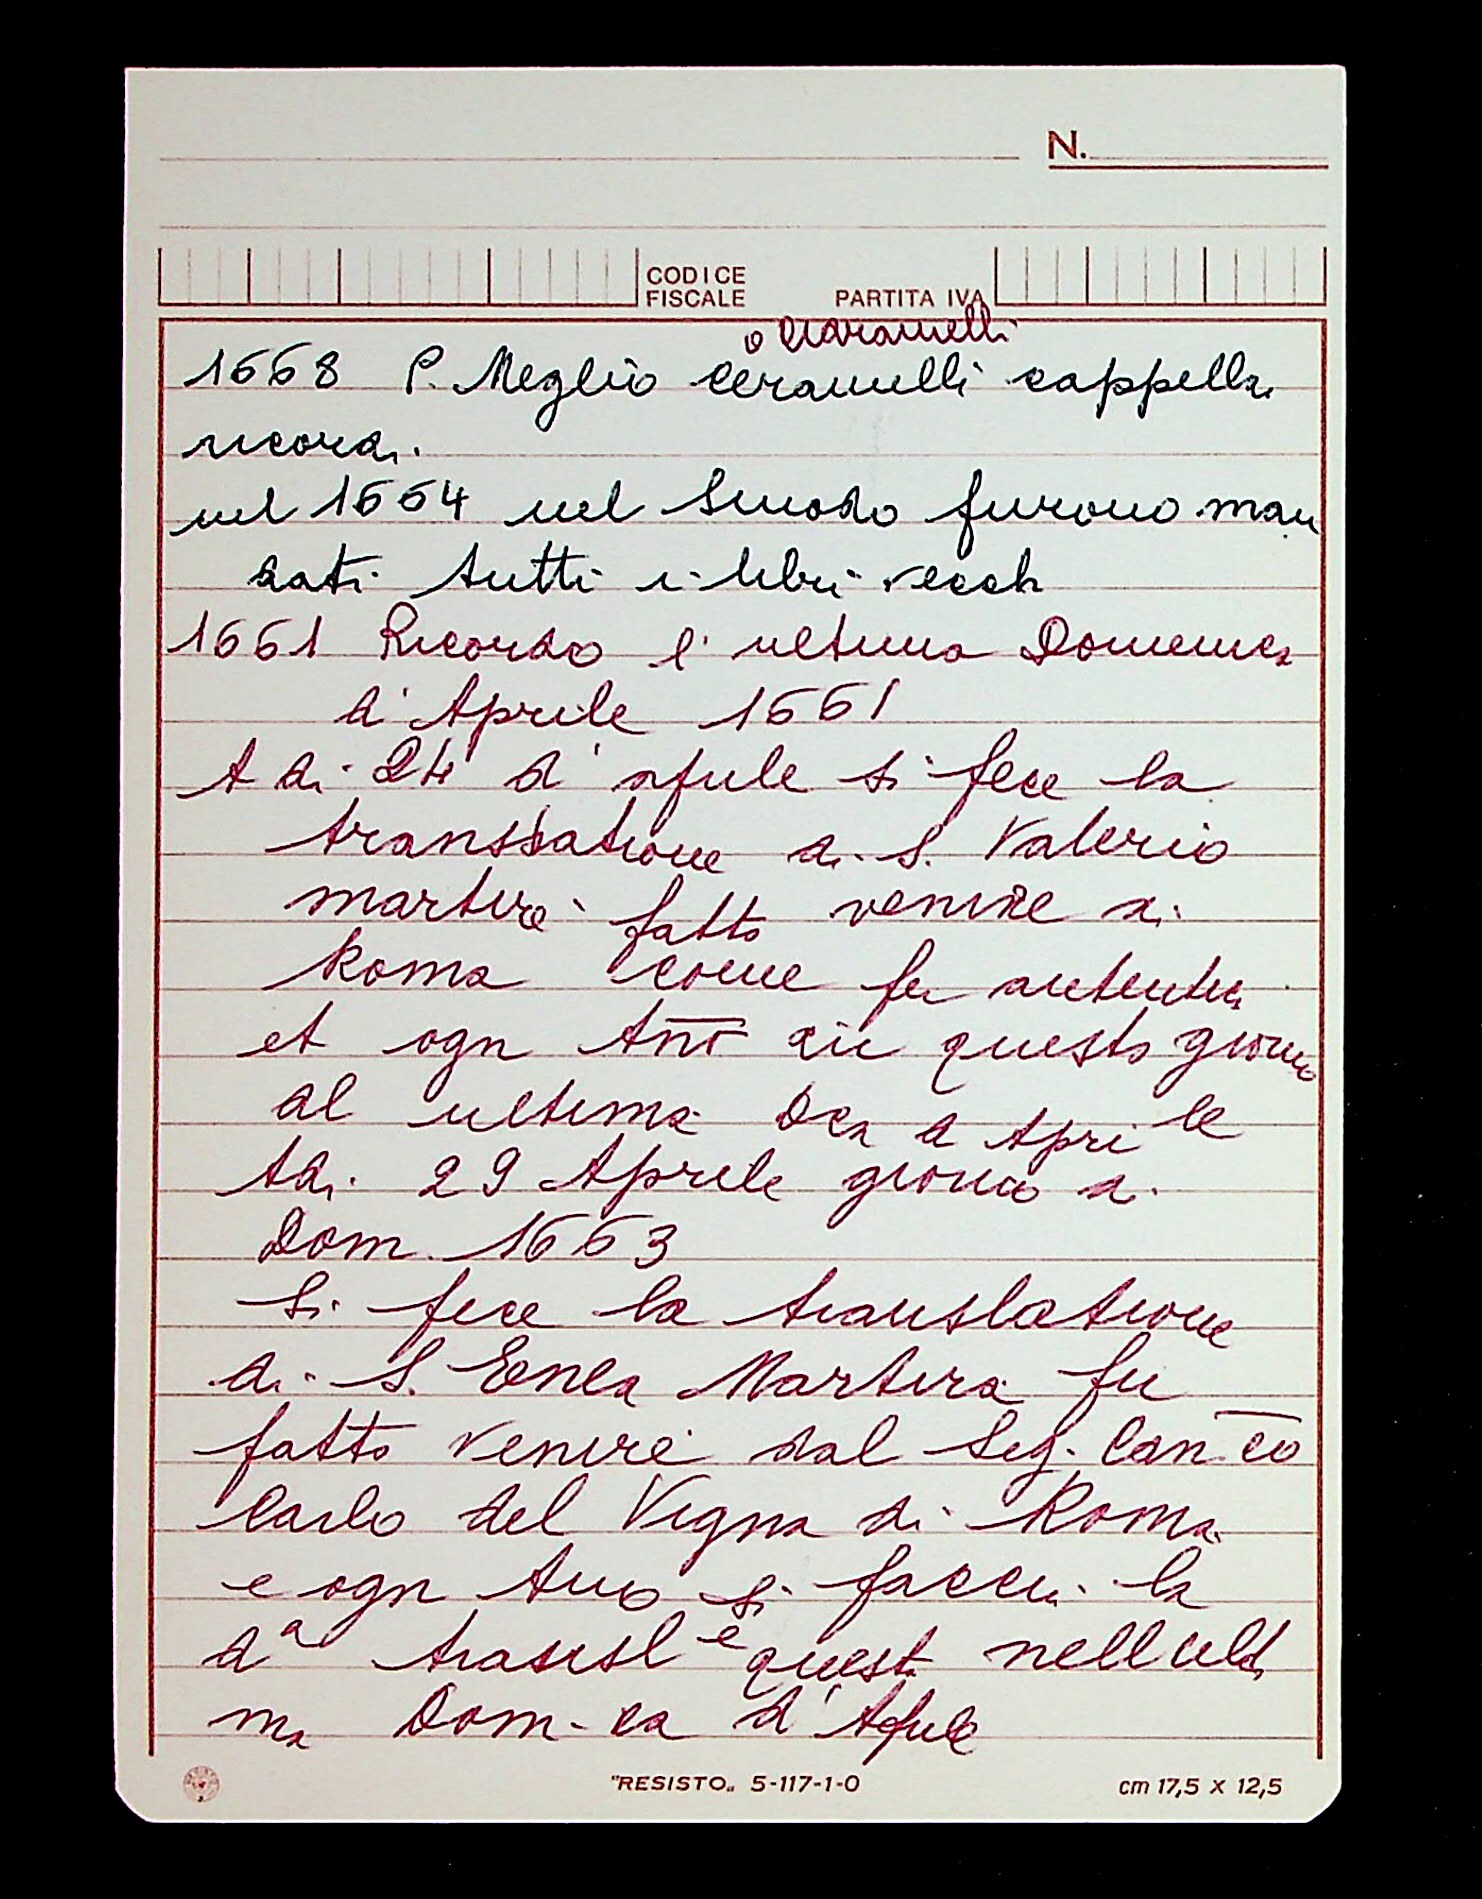 N.
CODICE
FISCALE
PARTITA IVA
o Ciaramelli
1668 P. Meglio Ceramelli cappella
ricorda.
nel 1664 nel Sinodo furono man
dati tutti i libri vecch
1661 Ricordo l'ultima Domenica
d'Aprile 1661
A di 24 d'aprile si fece la
translatione di S. Valerio
martire fatto venire di
Roma come fu
et ogn Ann questo giorno
al ultima Dca d Aprile
Adi 29 Aprile giorno di
Dom. 1663
Si fece la translatione
di S. Enea Martire fu
fatto venire dal Sig. Can.co
Carlo del Vigna di Roma
e ogn Anno si facci la
da trasl e quest nell ulti
ma Dom-ca d'Aprile
"RESISTO„ 5-117-1-0
cm 17,5 x 12,5